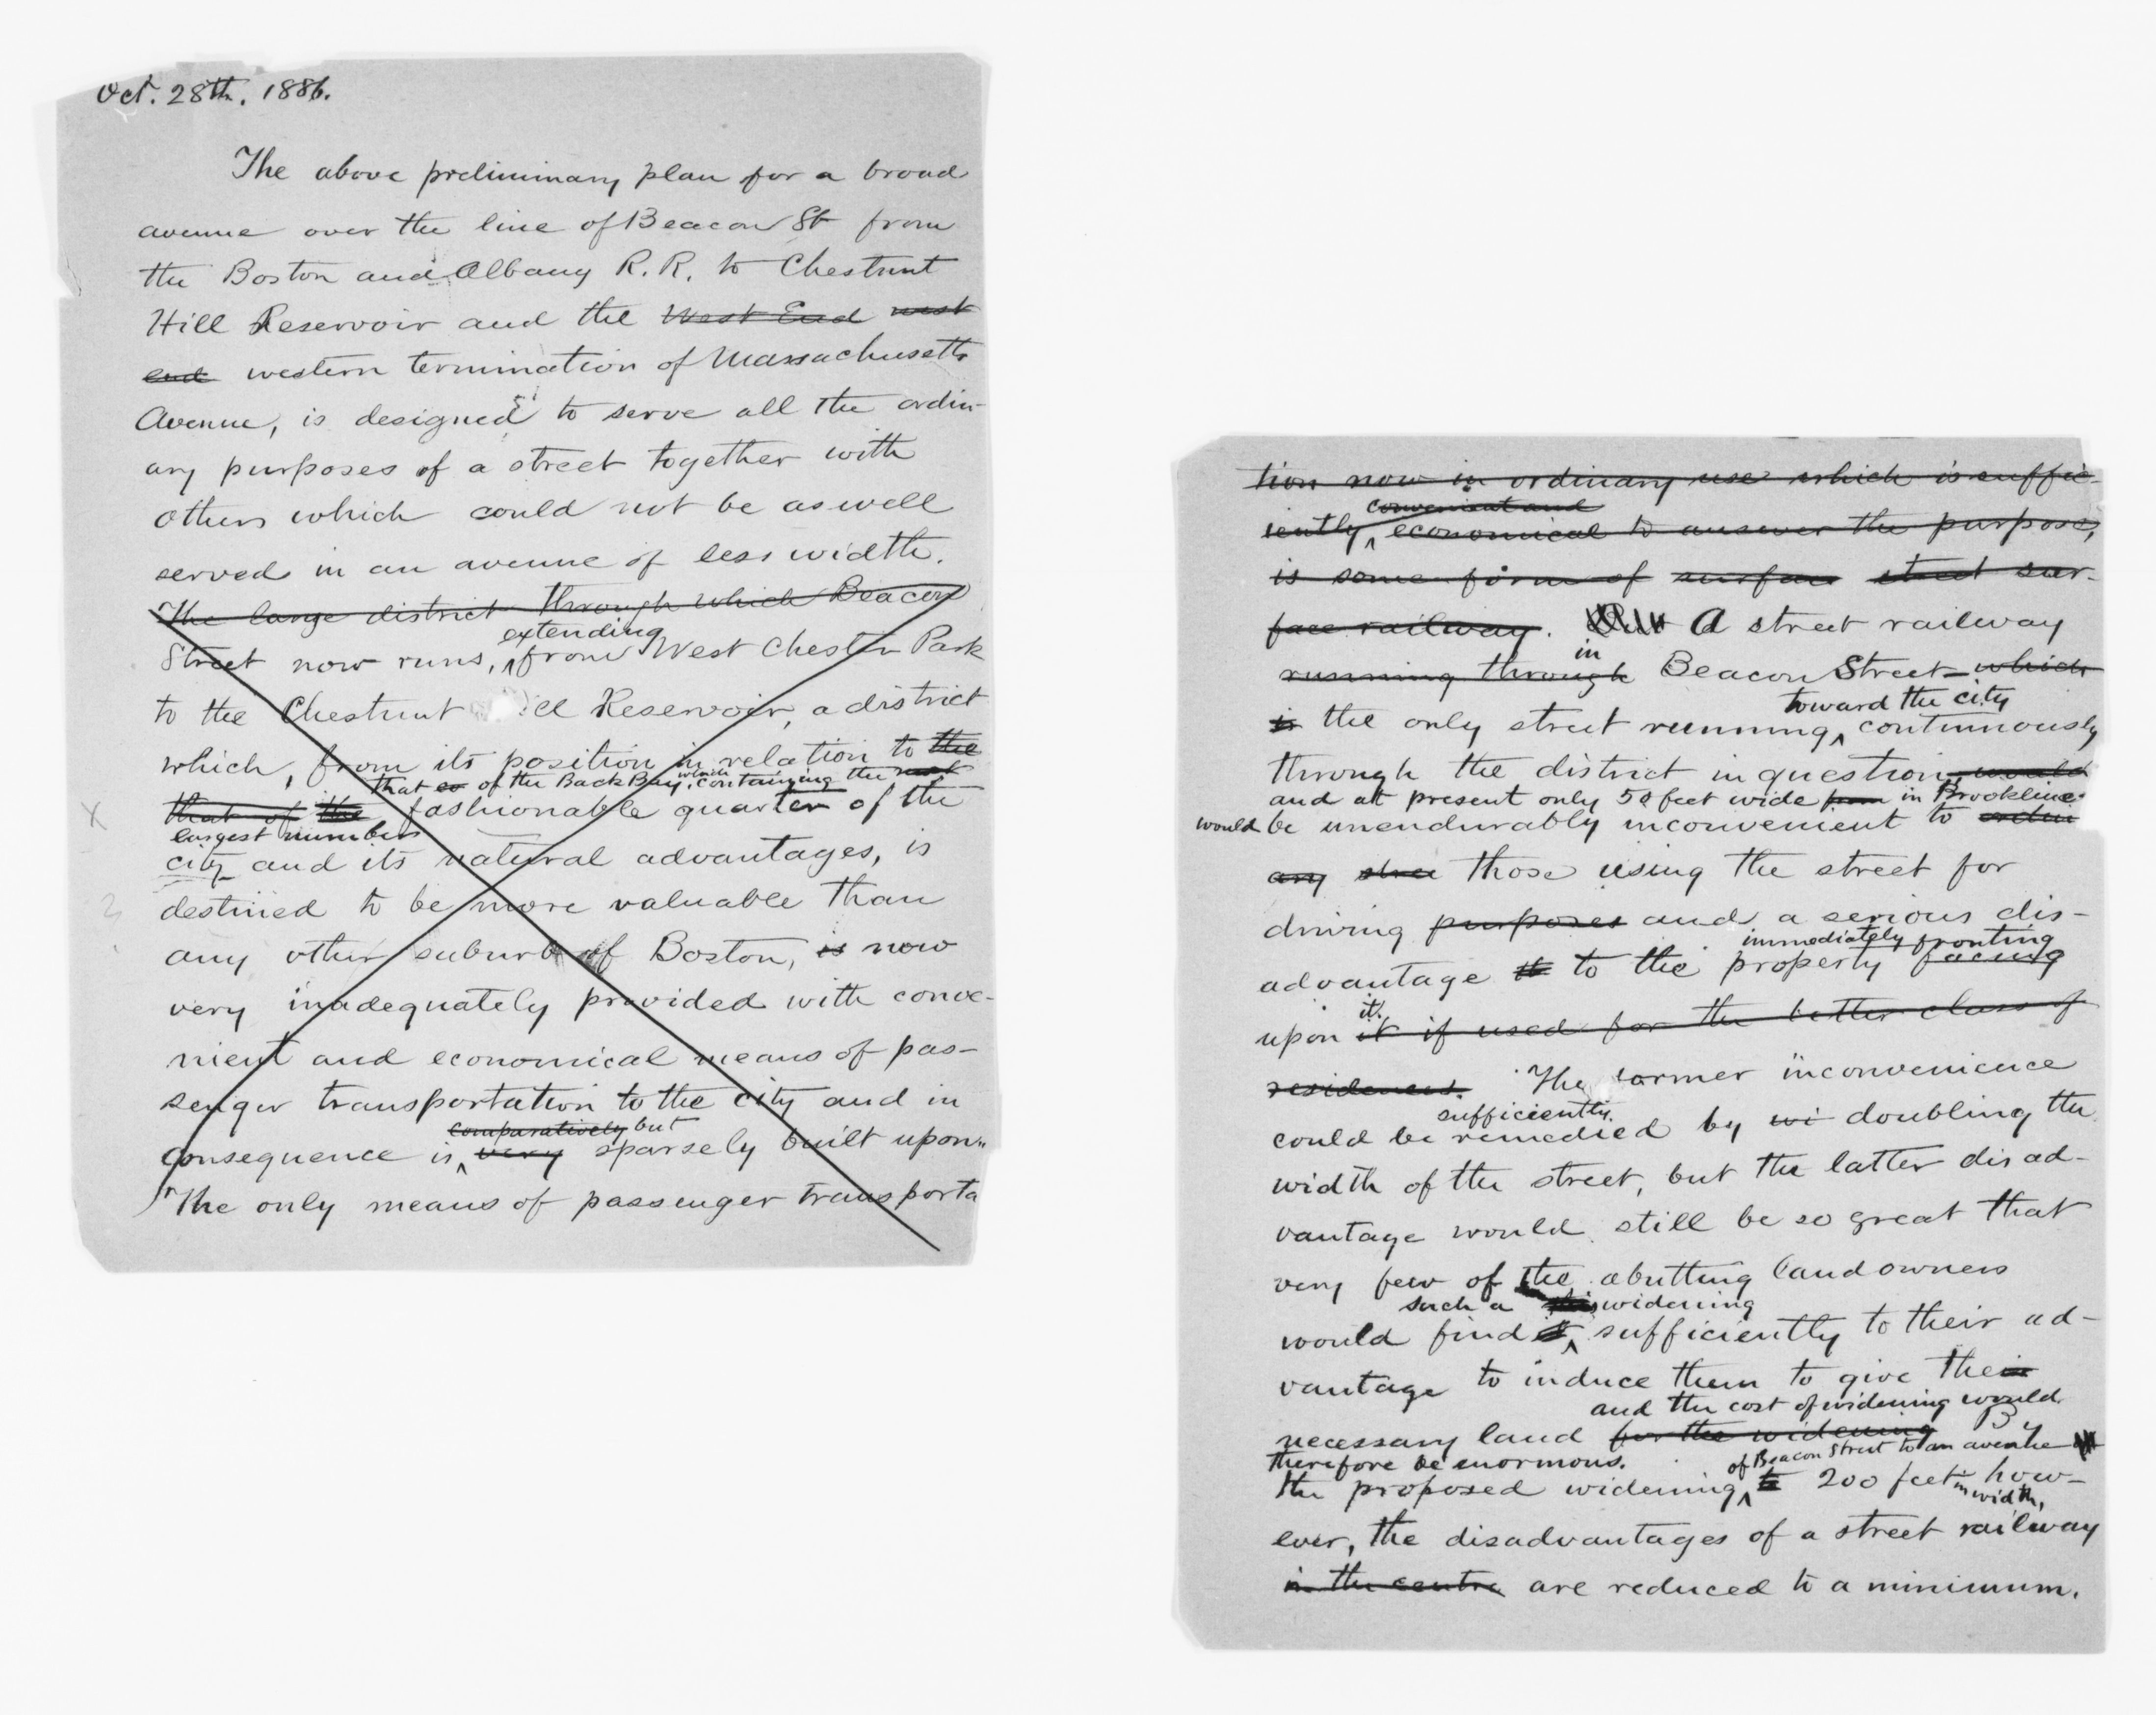 Oct. 28th. 1886.
The above preliminary plan for a broad
avenue over the line of Beacon St from
the Boston and Albany R. R. to Chestnut
Hill Reservoir and the West End west
end western termination of Massachusetts
Avenue, is designed to serve all the ordin-
ary purposes of a street together with
others which could not be as well
served in an avenue of less width.
The large district through which Beacon
extending
Street now runs, from West Chester Park
to the Chestnut Hill Reservoir, a district
which, from its position in relation to the
that of the Back Bay, which containing the
that of the fashionable quarter of the
largest number
city and its natural advantages, is
destined to be more valuable than
any other suburb of Boston, is now
very inadequately provided with conve-
nient and economical means of pas-
senger transportation to the city and in
comparatively but
consequence is very sparsely built upon.
The only means of passenger transporta
tion now in ordinary use which is suffic-
convenient and
iently economical to answer the purpose,
is some form of surface street sur-
face railway. But A street railway
in
running through Beacon Street which
toward the city
is the only street running continuously
through the district in question, would
and at present only 50 feet wide from in Brookline
would be unendurably inconvenient to
any those using the street for
driving purposes and a serious dis-
immediately fronting
advantage to the property facing
it.
upon it if used for the better class of
residences. The former inconvenience
sufficiently
could be remedied by wi doubling the
width of the street, but the latter disad-
vantage would still be so great that
very few of the abutting land owners
such a this widening
would find it sufficiently to their ad-
vantage to induce them to give their
and the cost of widening would
necessary land for the widening By
therefore be enormous. of Beacon Street to an avenue
the proposed widening to 200 feet how-
in width,
ever, the disadvantages of a street railway
in the centre are reduced to a minimum.